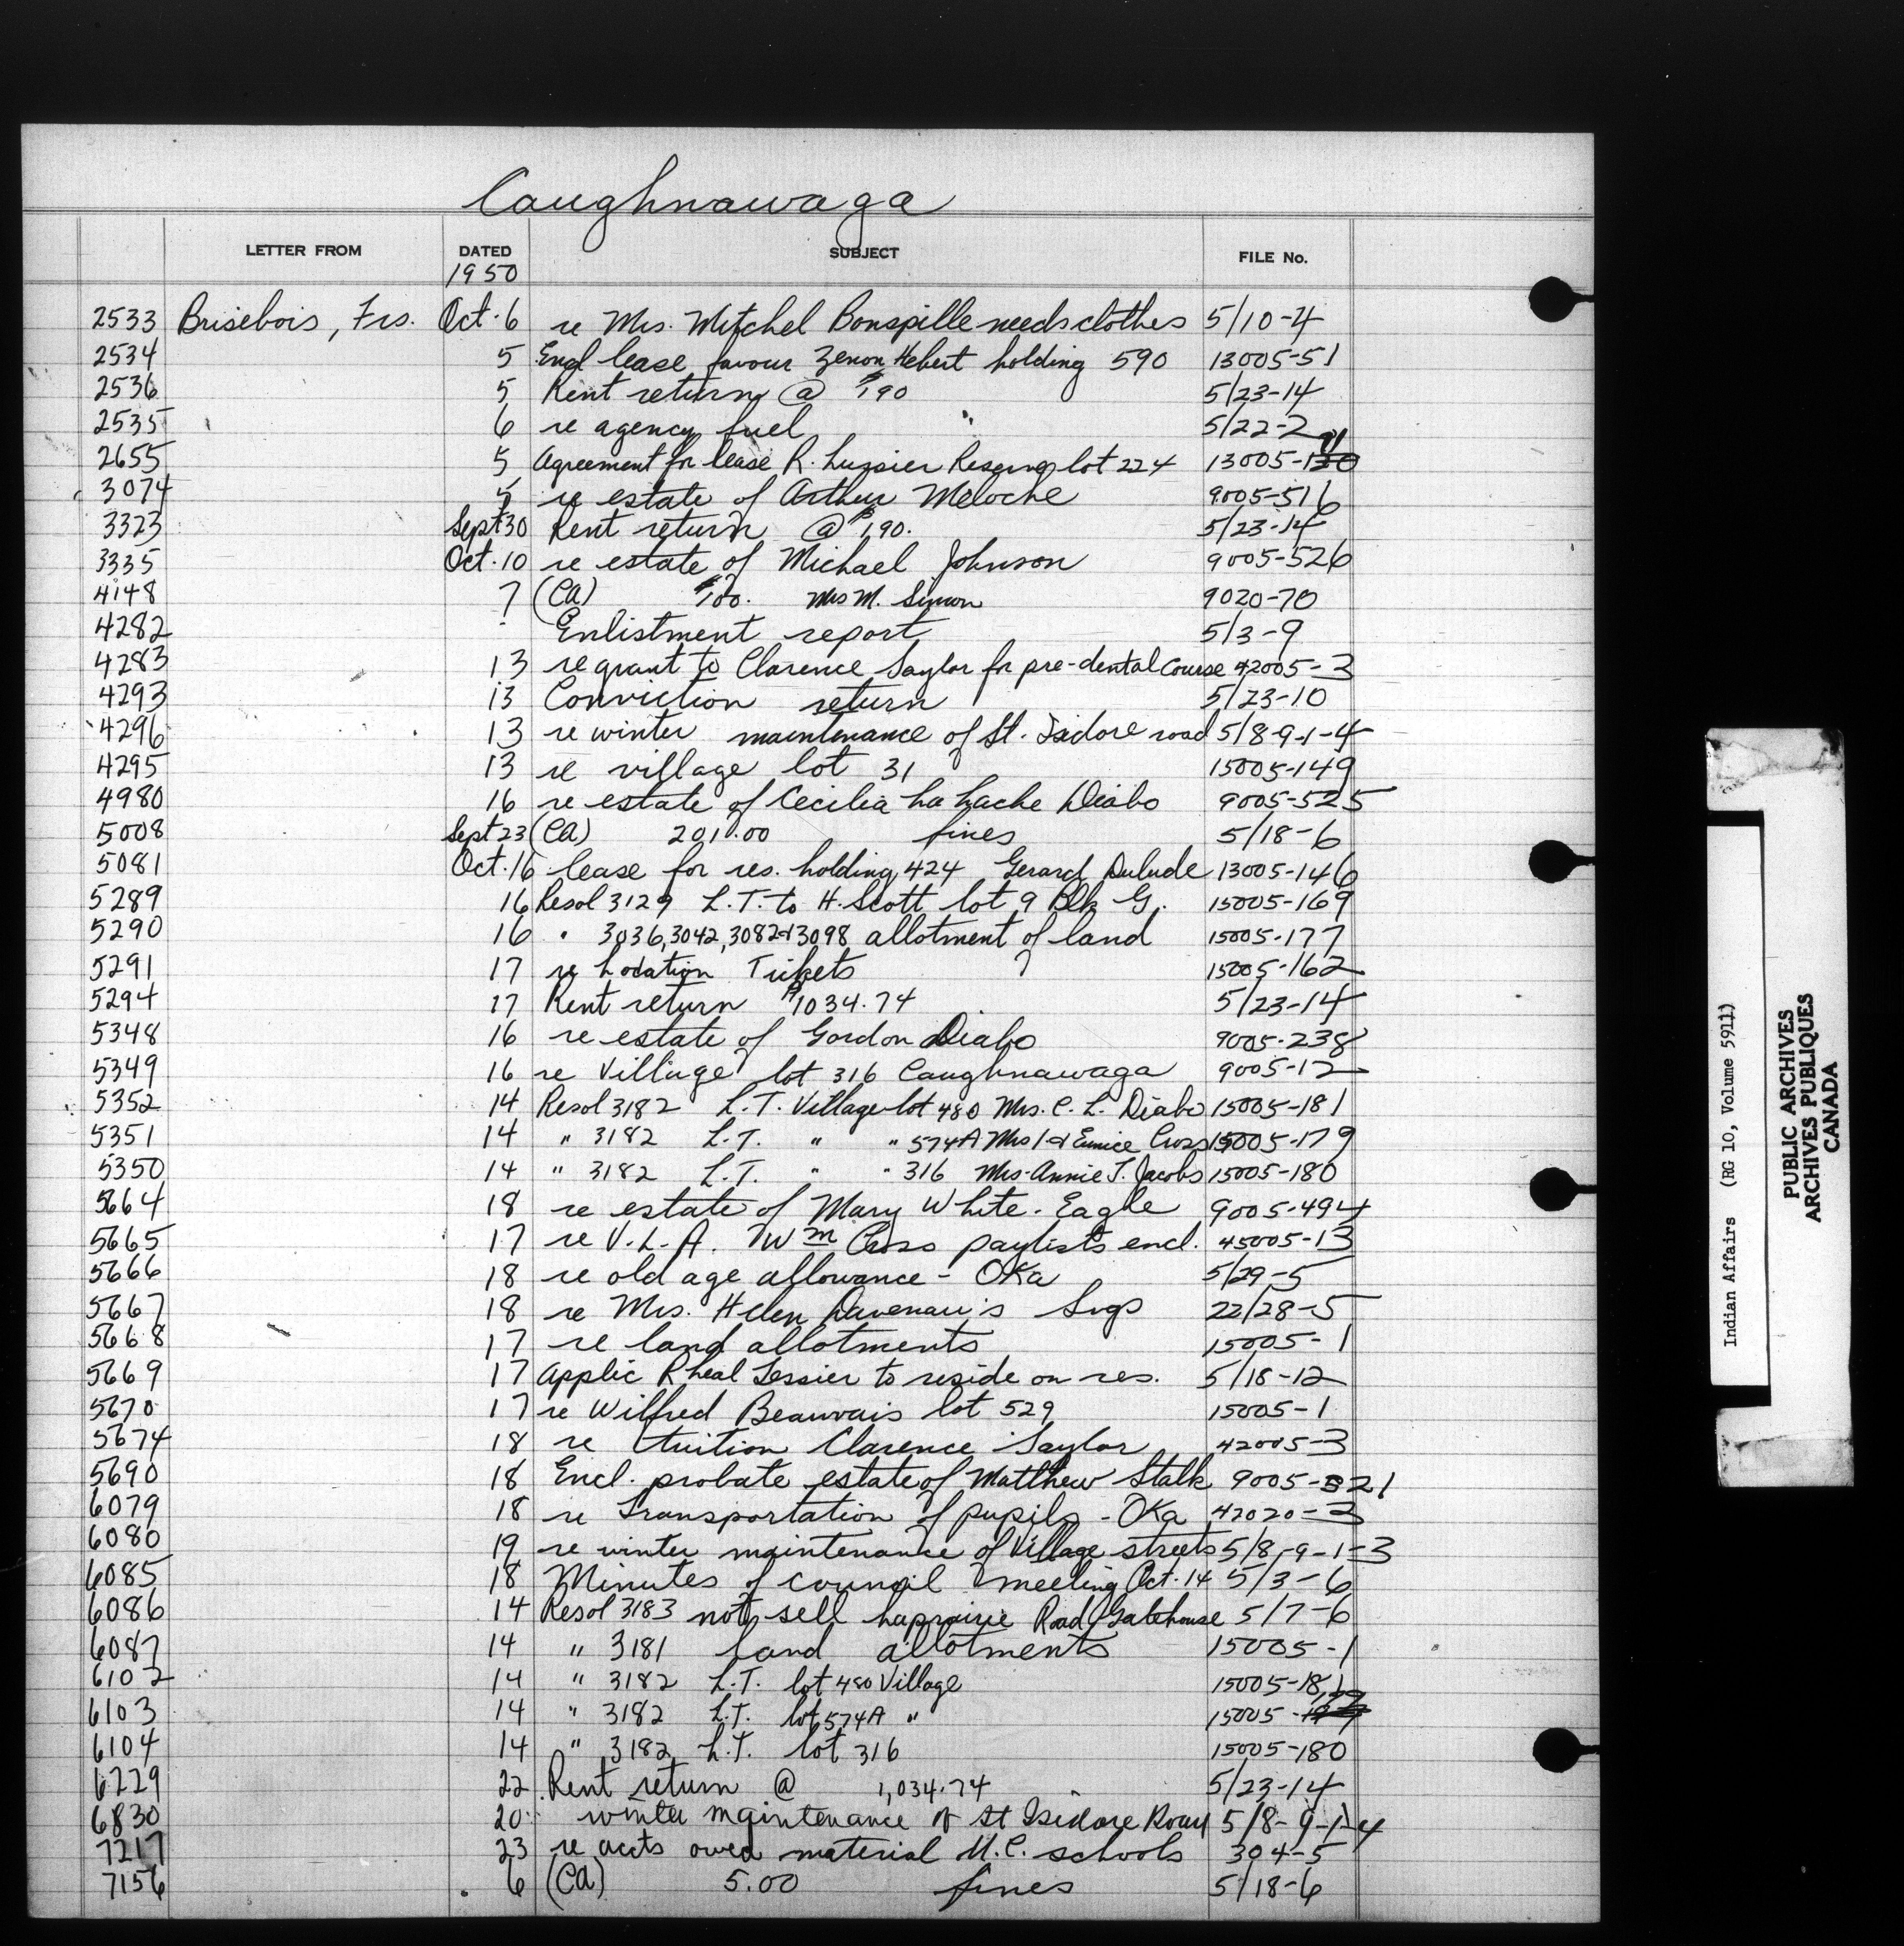 Caughnawaga
LETTER FROM DATED SUBJECT FILE No.
1950
2533 Brisebois, Frs. Oct. 6 re Mrs. Mitchel Bonspille needs clothes 5/10-4
2534 5 Encl lease favour Zenon Hebert holding 590 13005-51
2536 5 Rent return @ $190 5/23-14
2535 6 re agency fuel 5/22-2
2655 5 Agreement for lease R. Lussier Reserve lot 224 13005-1
3074 5 re estate of Arthur Meloche 9005-516
3323 Sept 30 Rent return @ $190. 5/23-14
3335 Oct. 10 re estate of Michael Johnson 9005-526
4148 7 (CA) $100. Mrs M. Simon 9020-70
4282 Enlistment report 5/3-9
4283 13 re grant to Clarence Saylor for pre-dental Course 42005-3
4293 13 Conviction return 5/23-10
4296 13 re winter maintenance of St. Isidore road 5/8-9-1-4
4295 13 re village lot 31 15005-149
4980 16 re estate of Cecilia La Hache Diabo 9005-525
5008 Sept 23 (CA) 201.00 fines 5/18-6
5081 Oct. 16 lease for res. holding 424 Gerard Dulude 13005-146
5289 16 Resol 3129 L.T. to H. Scott lot 9 Blk G. 15005-169
5290 16 " 3036, 3042, 3082 & 3098 allotment of land 15005-177
5291 17 re Location Tickets 15005-162
5294 17 Rent return $1034.74 5/23-14
5348 16 re estate of Gordon Diabo 9005-238
5349 16 re Village lot 316 Caughnawaga 9005-12
5352 14 Resol 3182 L.T. Village lot 480 Mrs. C. L. Diabo 15005-181
5351 14 " 3182 L.T. " " 574A Mrs & Eunice Cross 15005-179
5350 14 " 3182 L.T. " " 316 Mrs. Annie T. Jacobs 15005-180
5664 18 re estate of Mary White-Eagle 9005-494
5665 17 re V.L.A. Wm Cross paylists encl. 45005-13
5666 18 re old age allowance - Oka 5/29-5
5667 18 re Mrs. Helen Svgs 22/28-5
5668 17 re land allotments 15005-1
5669 17 Applic Rheal Tessier to reside on res. 5/18-12
5670 17 re Wilfred Beauvais lot 529 15005-1
5674 18 re tuition Clarence Saylor 42005-3
5690 18 Encl. probate estate of Matthew Stalk 9005-521
6079 18 re Transportation of pupils - Oka 42020-3
6080 19 re winter maintenance of Village streets 5/8-9-1-3
6085 18 Minutes of council meeting Oct. 14 5/3-6
6086 14 Resol 3183 not sell Laprairie Road Gatehouse 5/7-6
6087 14 " 3181 land allotments 15005-1
6102 14 " 3182 L.T. lot 480 Village 15005-181
6103 14 " 3182 L.T. lot 574A " 15005-179
6104 14 " 3182 L.T. lot 316 15005-180
6229 22 Rent return @ 1,034.74 5/23-14
6830 20 winter maintenance of St Isidore Road 5/8-9-1-4
7217 23 re accts owed material U.C. schools 304-5
7156 6 (CA) 5.00 fines 5/18-6
Indian Affairs (RG 10, Volume 5911)
PUBLIC ARCHIVES
ARCHIVES PUBLIQUES
CANADA